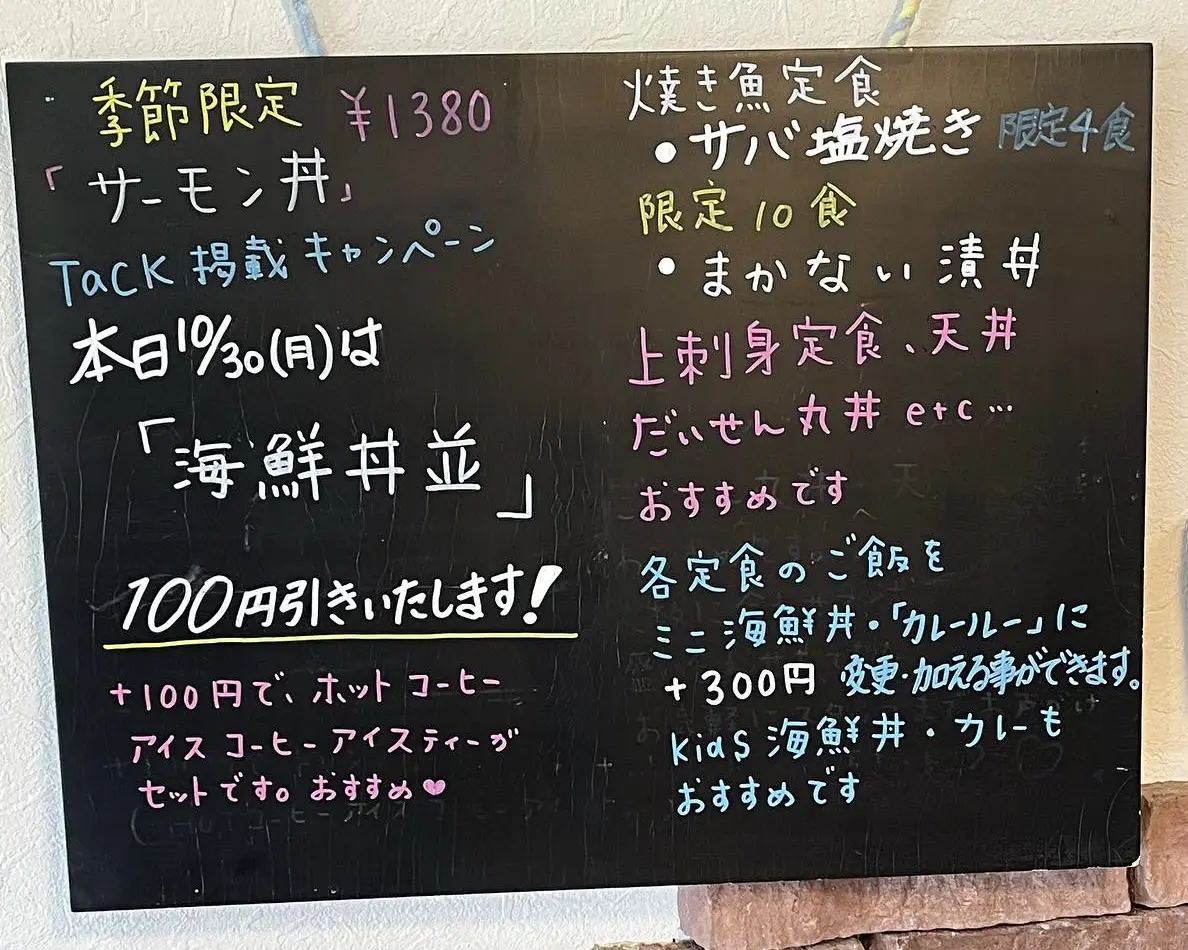 季節限定 ¥1380
「サーモン丼」
TaCK 掲載 キャンペーン
本日10/30(月)は
「海鮮丼並」
100円引きいたします!
+100円で、ホットコーヒー
アイスコーヒーアイスティーが
セットです。おすすめ♥
焼き魚定食
•サバ塩焼き 限定4食
限定10食
•まかない漬丼
上刺身定食、天丼
だいせん丸丼 etc…
おすすめです
各定食のご飯を
ミニ海鮮丼・「カレールー」に
+300円 変更・加える事ができます。
kidS 海鮮丼・カレーも
おすすめです